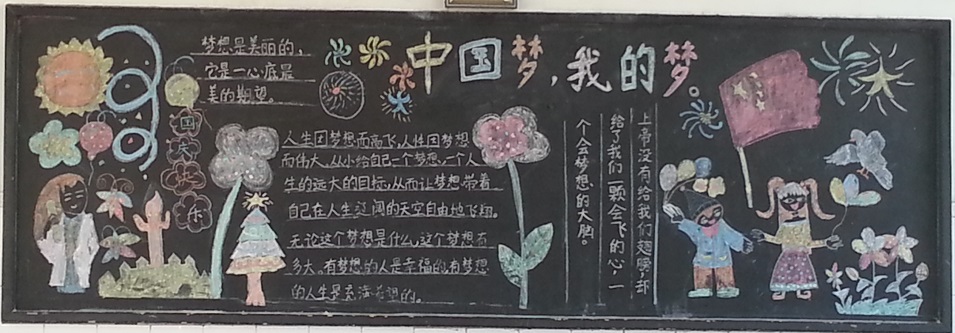 梦想是美丽的，
它是一心底最
美的期望。
中国梦，我的梦。
国
庆
快
乐
人生因梦想而高飞，人性因梦想
而伟大。从小给自己一个梦想，一个人
生的远大的目标，从而让梦想带着
自己在人生辽阔的天空自由地飞翔。
无论这个梦想是什么，这个梦想有
多大。有梦想的人是幸福的，有梦想
的人生是充满希望的。
上帝没有给我们翅膀，却
给了我们一颗会飞的心，一
个会梦想的大脑。